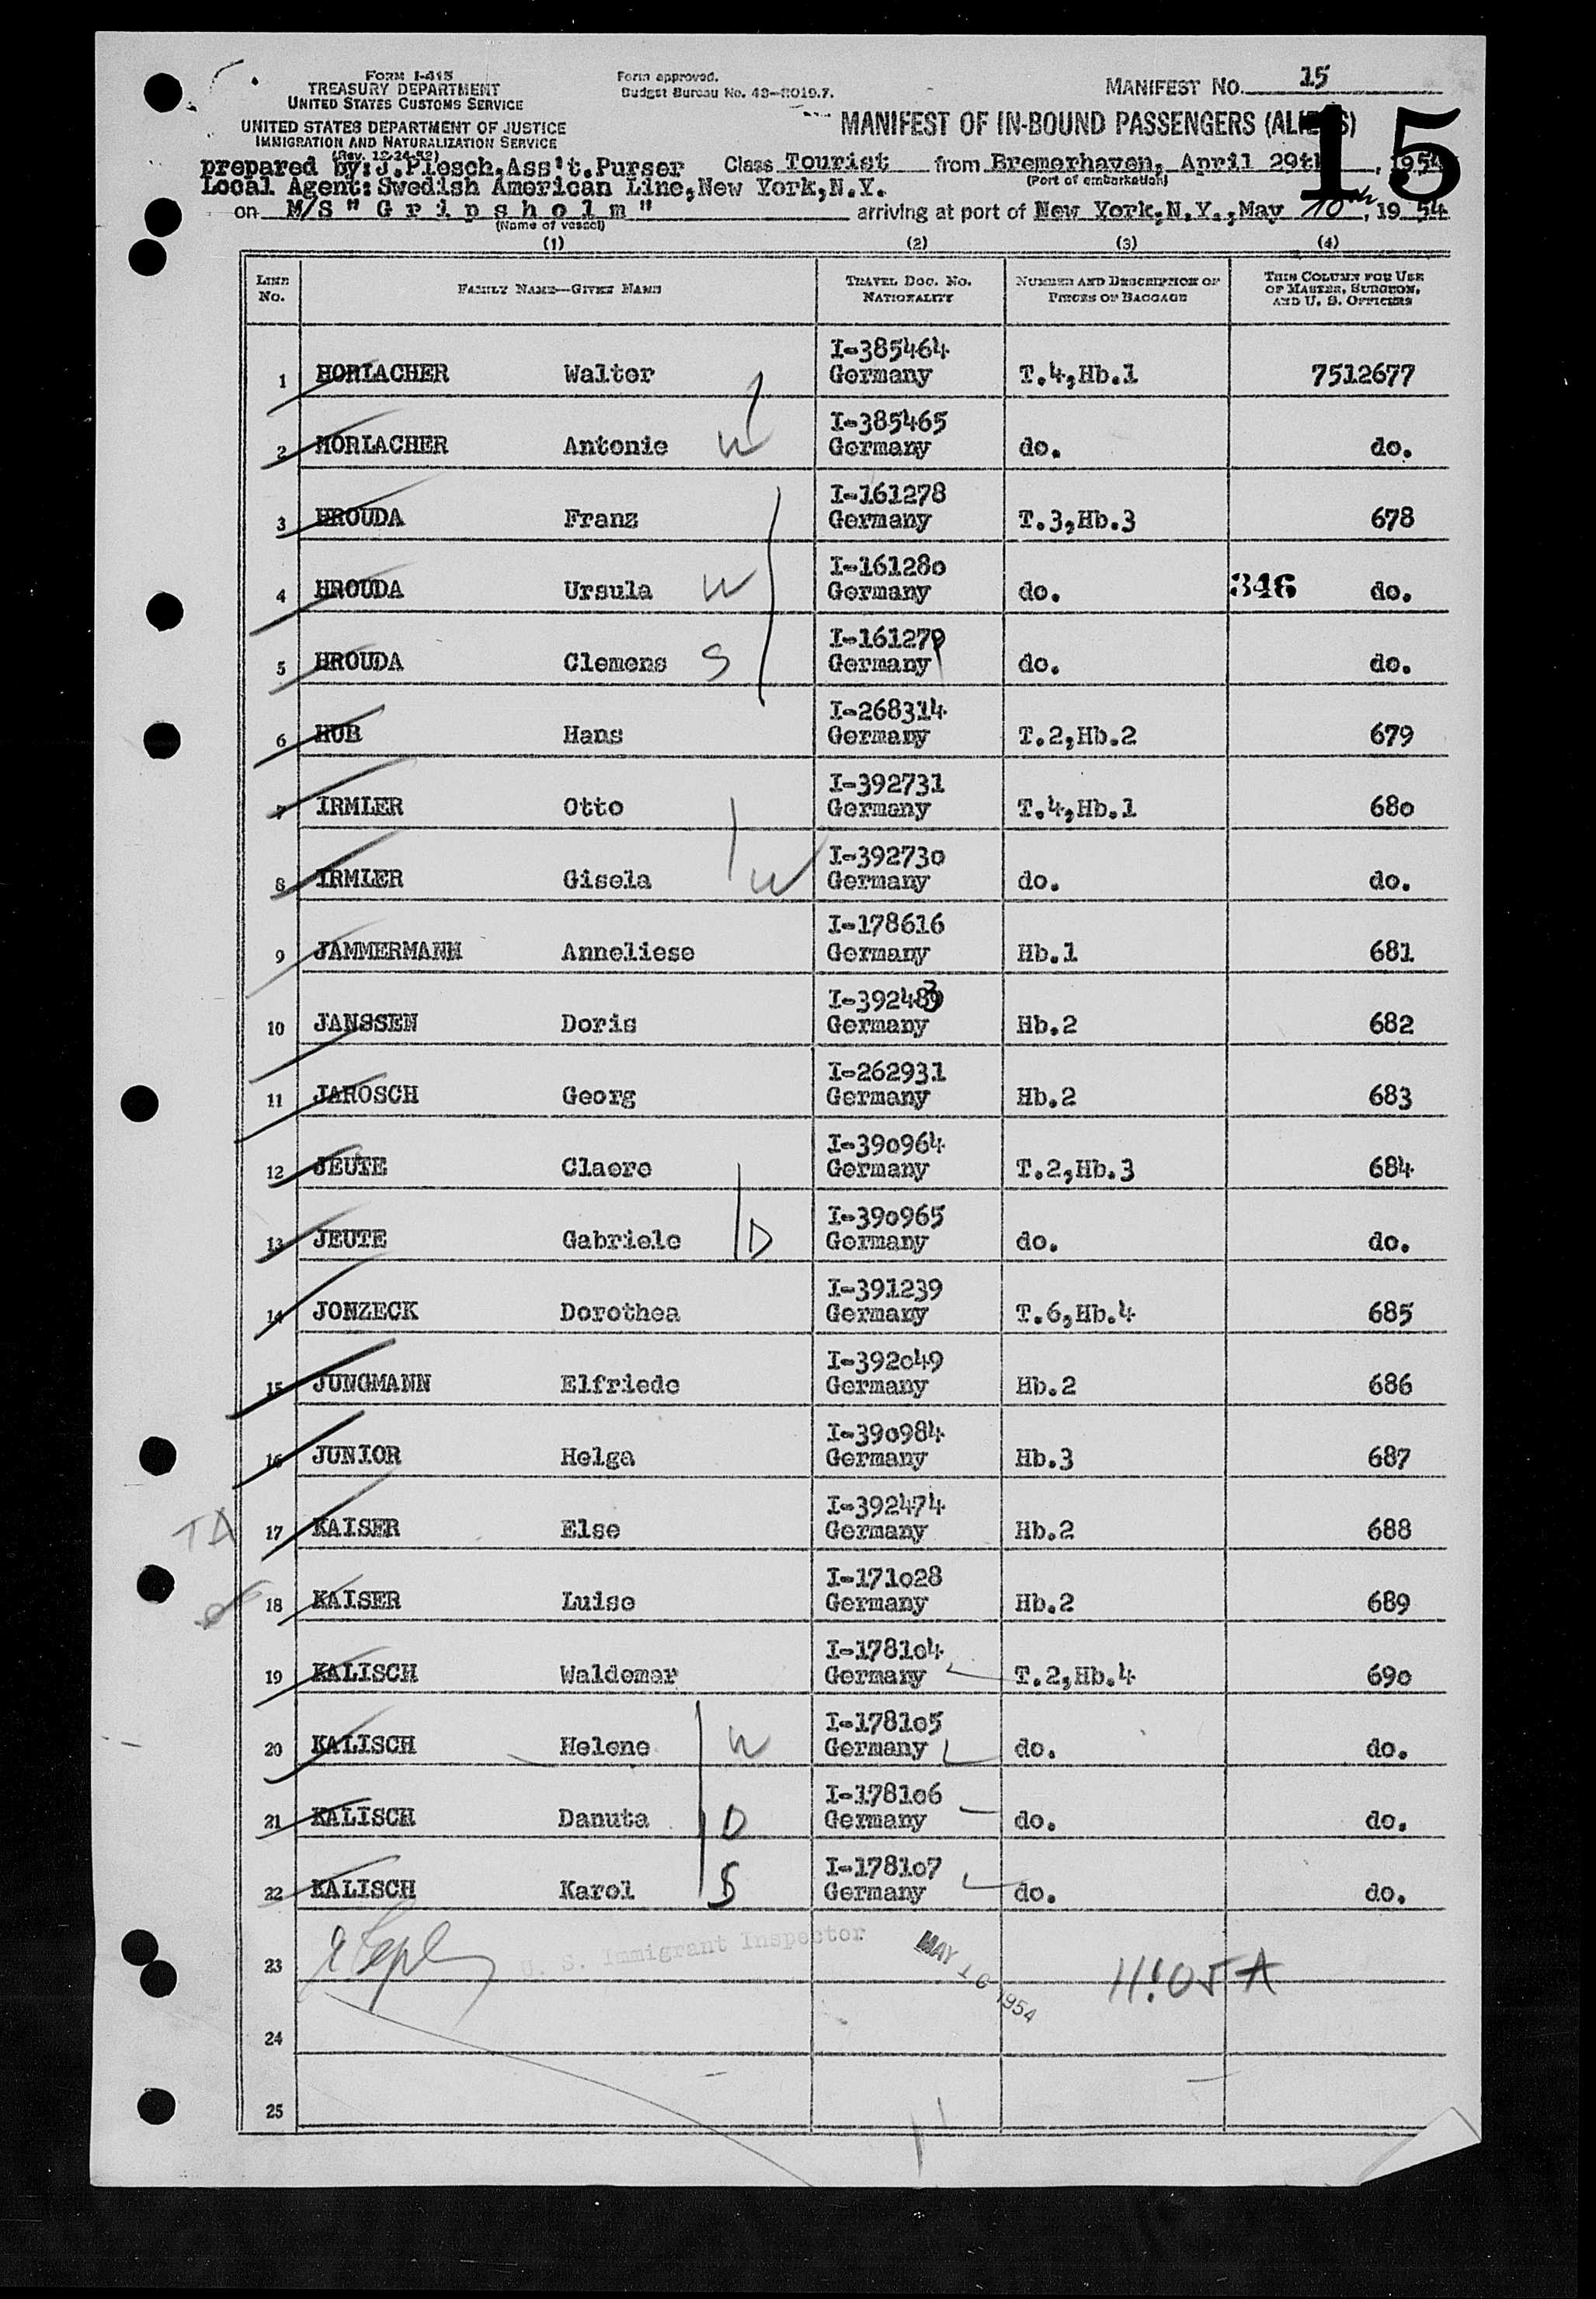 FORM I-415
TREASURY DEPARTMENT
UNITED STATES CUSTOMS SERVICE
UNITED STATES DEPARTMENT OF JUSTICE
IMMIGRATION AND NATURALIZATION SERVICE
(Rev. 12-24-52)
Form approved.
Budget Bureau No. 43-R019.7.
MANIFEST NO. 15
15
MANIFEST OF IN-BOUND PASSENGERS (ALIENS)
prepared by: J.Plesch,Ass't.Purser Class Tourist from Bremerhaven, April 29th, 1954
(Port of embarkation)
Local Agent: Swedish American Line,New York,N.Y.
on M/S "Gripsholm" arriving at port of New York,N.Y.,May 10th, 1954
(Name of vessel)
(1) (2) (3) (4)
LINE NO. FAMILY NAME—GIVEN NAME TRAVEL DOC. NO. NATIONALITY NUMBER AND DESCRIPTION OF PIECES OF BAGGAGE THIS COLUMN FOR USE OF MASTER, SURGEON, AND U. S. OFFICERS
I-385464
1 HORLACHER Walter Germany T.4,Hb.1 7512677
I-385465
2 HORLACHER Antonie W Germany do. do.
I-161278
3 HROUDA Franz Germany T.3,Hb.3 678
I-161280
4 HROUDA Ursula W Germany do. 346 do.
I-161279
5 HROUDA Clemens S Germany do. do.
I-268314
6 HUB Hans Germany T.2,Hb.2 679
I-392731
7 IRMLER Otto Germany T.4,Hb.1 680
I-392730
8 IRMLER Gisela W Germany do. do.
I-178616
9 JAMMERMANN Anneliese Germany Hb.1 681
I-392483
10 JANSSEN Doris Germany Hb.2 682
I-262931
11 JAROSCH Georg Germany Hb.2 683
I-390964
12 JEUTE Claere Germany T.2,Hb.3 684
I-390965
13 JEUTE Gabriele D Germany do. do.
I-391239
14 JONZECK Dorothea Germany T.6,Hb.4 685
I-392049
15 JUNGMANN Elfriede Germany Hb.2 686
I-390984
16 JUNIOR Helga Germany Hb.3 687
I-392474
TA 17 KAISER Else Germany Hb.2 688
I-171028
18 KAISER Luise Germany Hb.2 689
I-178104
19 KALISCH Waldemar Germany T.2,Hb.4 690
I-178105
20 KALISCH Helene W Germany do. do.
I-178106
21 KALISCH Danuta D Germany do. do.
I-178107
22 KALISCH Karol S Germany do. do.
23 U. S. Immigrant Inspector MAY 10 1954 11:05 A
24
25